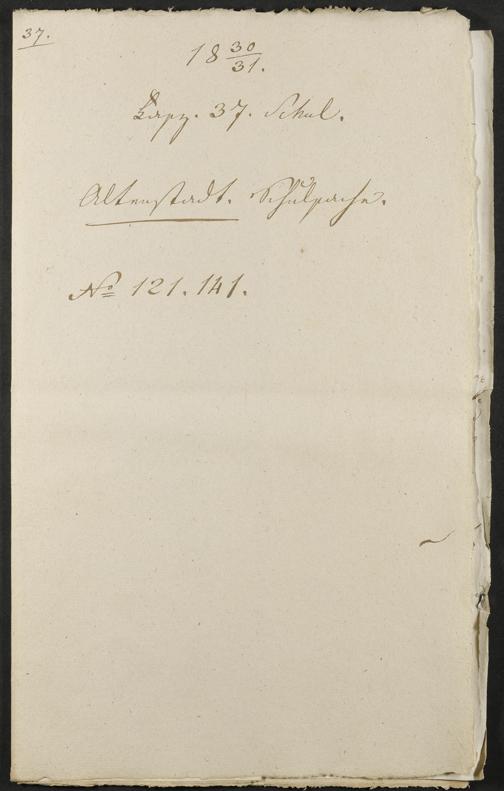 37.
18 30/31.
37. Schul.
Altenstadt. Schulsache.
No 121. 141.